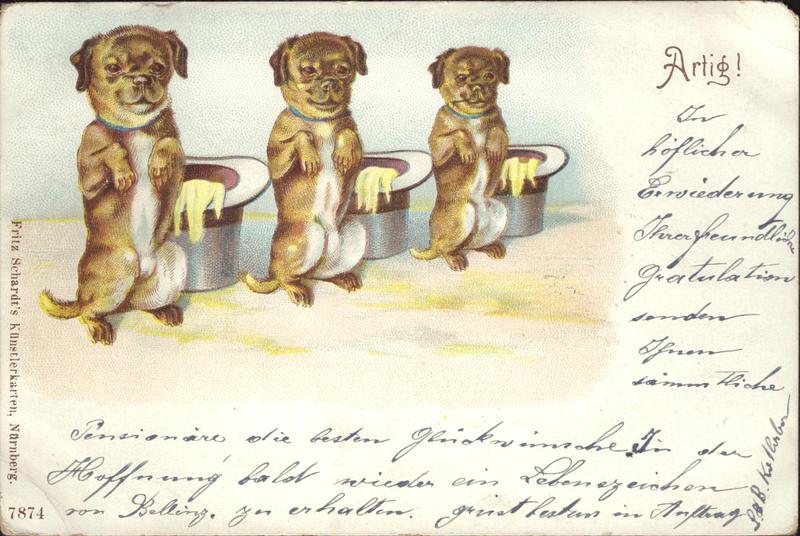 Artig!
In
höflicher
Erwiederung
Ihrer freundliche
Gratulation
senden
Ihnen
sämmtliche
Pensionäre die besten Glückwünsche. In der
Hoffnung bald wieder ein Lebenszeichen
von Belling. zu erhalten. grüst bestens im Auftrag
Fritz Schardt's Künstlerkarten, Nürnberg.
7874